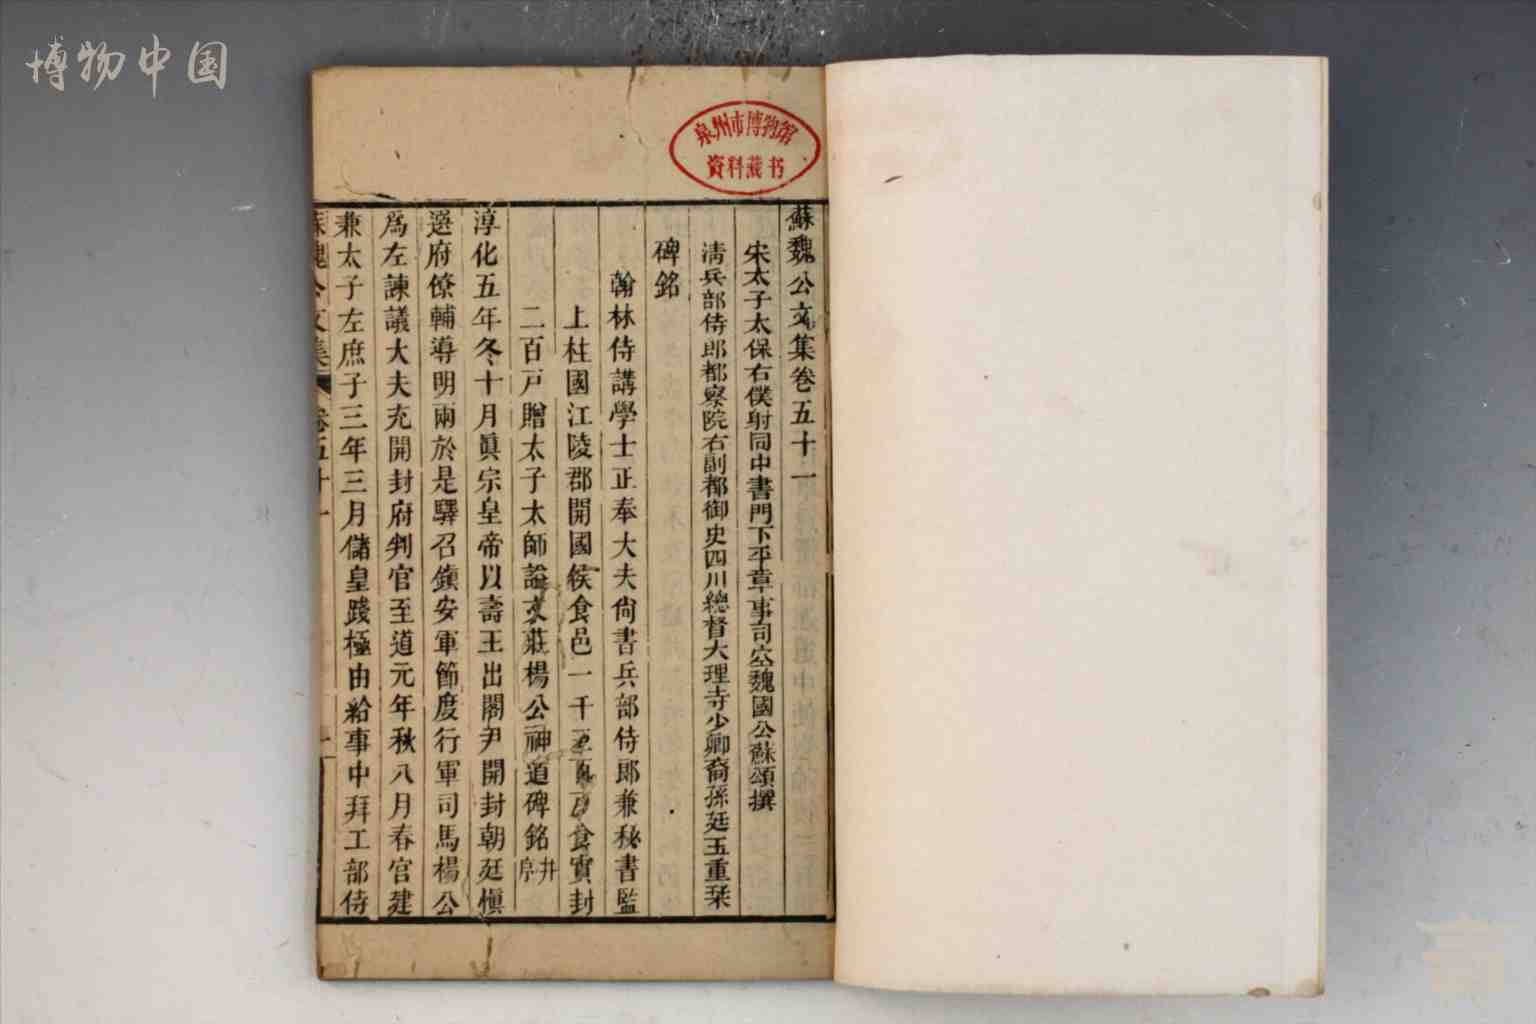 博物中国
泉州市博物馆
资料藏书
蘇魏公文集卷五十一
宋太子太保右僕射同中書門下平章事司空魏國公蘇頌撰
清兵部侍郎都察院右副都御史四川總督大理寺少卿裔孫廷玉重栞
碑銘
翰林侍講學士正奉大夫尙書兵部侍郎兼秘書監
上柱國江陵郡開國侯食邑一千五百戸食實封
二百戸贈太子太師諡文莊楊公神道碑銘并序
淳化五年冬十月眞宗皇帝以壽王出閣尹開封朝廷愼
選府僚輔導明兩於是驛召鎮安軍節度行軍司馬楊公
爲左諫議大夫充開封府判官至道元年秋八月春官建
兼太子左庶子三年三月儲皇踐極由給事中拜工部侍
蘇魏公文集 卷五十一 一